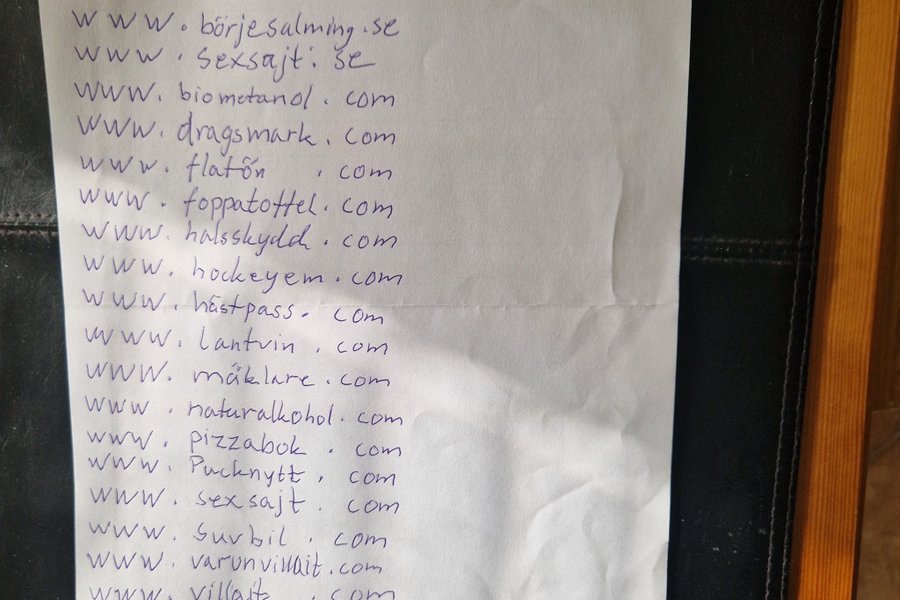 www.börjesalming.se
www.sexsajt.se
www.biometanol.com
www.dragsmark.com
www.flatön.com
www.foppatoffel.com
www.halsskydd.com
www.hockeyem.com
www.hästpass.com
www.lantvin.com
www.mäklare.com
www.naturalkohol.com
www.pizzabok.com
www.Pucknytt.com
www.sexsajt.com
www.suvbil.com
www.varunvillait.com
www.villait.com